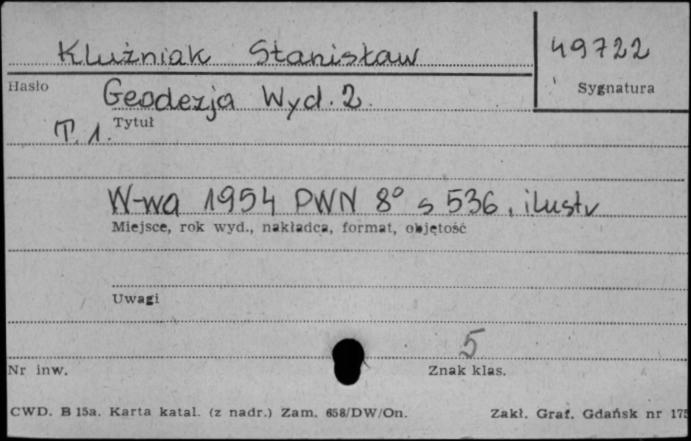 Kluźniak Stanisław
49722
Hasło
Sygnatura
Geodezja Wyd. 2.
T. 1. Tytuł
W-wa 1954 PWN 8° s 536, ilustr
Miejsce, rok wyd., nakładca, format, objętość
Uwagi
5
Nr inw.
Znak klas.
CWD. B 15a. Karta katal. (z nadr.) Zam. 658/DW/On.
Zakł. Graf. Gdańsk nr 175